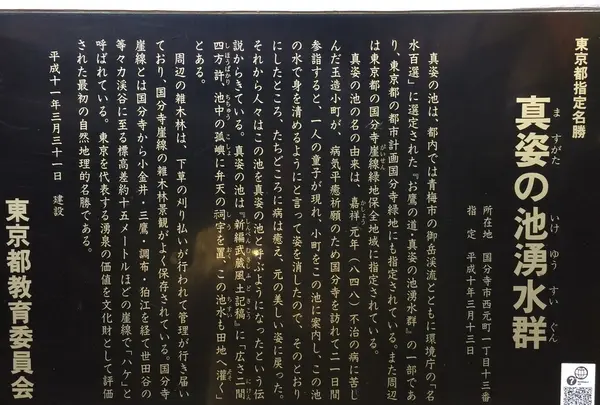 東京都指定名勝
真姿の池湧水群
ま すがた いけ ゆう すい ぐん
所在地 国分寺市西元町一丁目十三番
指定 平成十年三月十三日
真姿の池は、都内では青梅市の御岳渓流とともに環境庁の「名
水百選」に選定された『お鷹の道・真姿の池湧水群』の一部であ
り、東京都の都市計画国分寺緑地にも指定されている。また周辺
は東京都の国分寺崖線緑地保全地域に指定されている。
真姿の池の名の由来は、嘉祥元年(八四八)不治の病に苦し
んだ玉造小町が、病気平癒祈願のため国分寺を訪れて二一日間
参詣すると、一人の童子が現れ、小町をこの池に案内し、この池
の水で身を清めるようにと言って姿を消したので、そのとおり
にしたところ、たちどころに病は癒え、元の美しい姿に戻った。
それから人々はこの池を真姿の池と呼ぶようになったという伝
説からきている。真姿の池は『新編武蔵風土記稿』に「広さ二間
四方許、池中の孤嶼に弁天の祠宇を置、この池水も田地へ灌ぐ」
とある。
周辺の雑木林は、下草の刈り払いが行われて管理が行き届い
ており、国分寺崖線の雑木林景観がよく保存されている。国分寺
崖線とは国分寺から小金井・三鷹・調布・狛江を経て世田谷の
等々力渓谷に至る標高差約十五メートルほどの崖線で「ハケ」と
呼ばれている。東京を代表する湧泉の価値を文化財として評価
された最初の自然地理的名勝である。
平成十一年三月三十一日 建設
東京都教育委員会